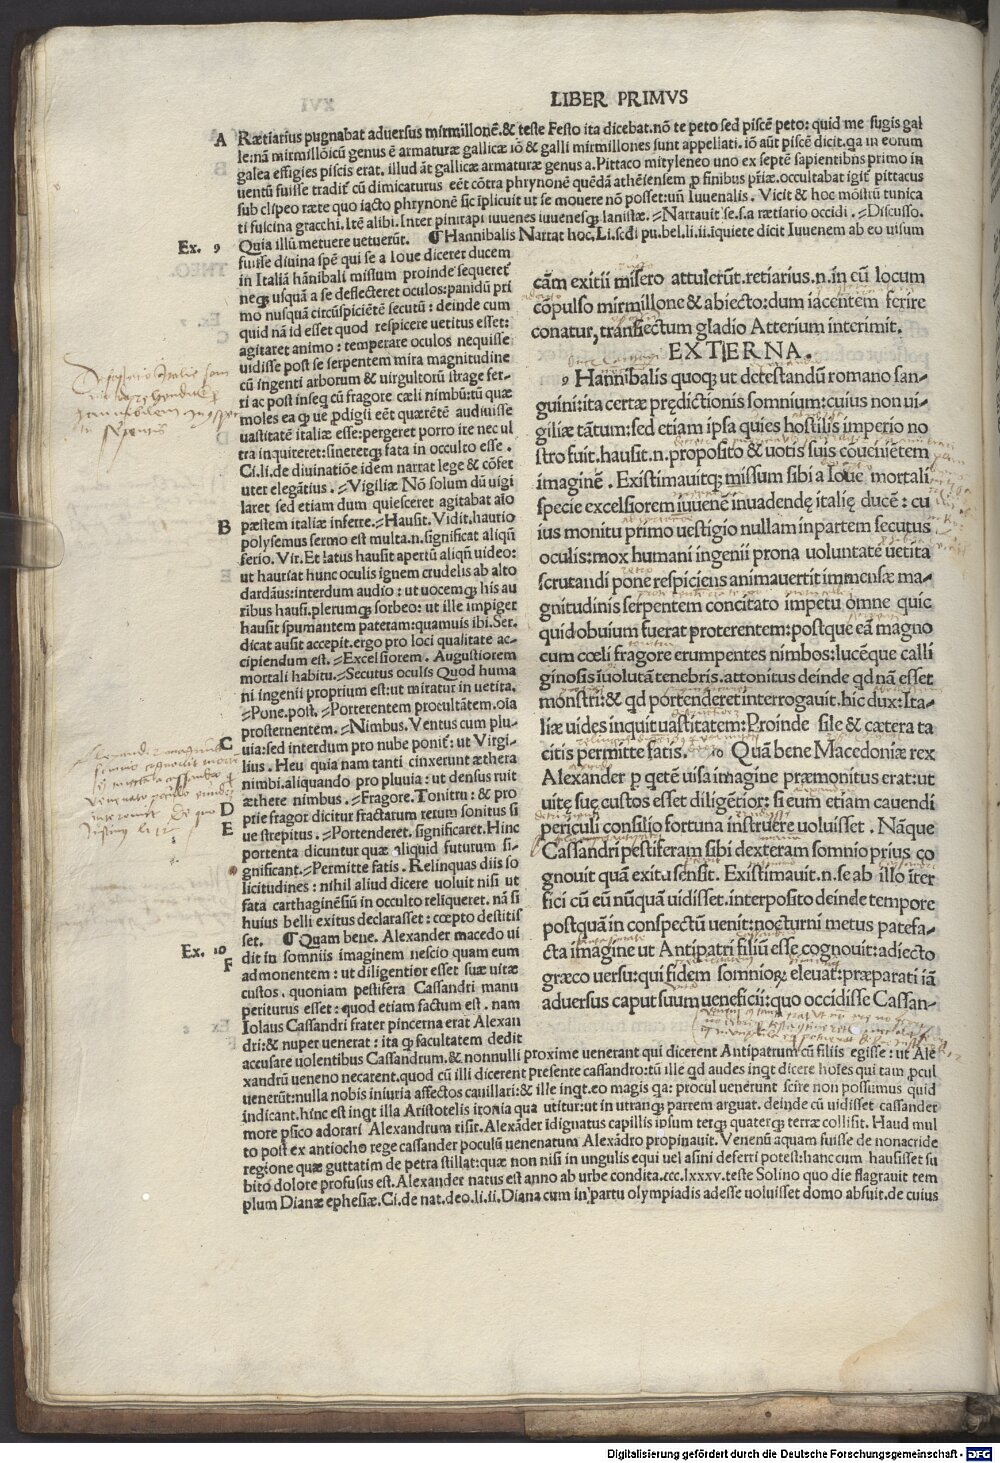 LIBER PRIMVS
A Rætiarius pugnabat aduersus mirmillonē.& teste Festo ita dicebat.nō te peto sed piscē peto: quid me fugis gal
le:nā mirmillōicū genus ē armaturæ gallicæ iō & galli mirmillones sunt appellati. iō aūt piscē dicit.qa in eorum
galea effigies piscis erat. illud āt gallicæ armaturæ genus a.Pittaco mityleneo uno ex septē sapientibus primo in
uentū fuisse tradit̄ cū dimicaturus eēt cōtra phrynonē quēdā athēiensem ꝑ finibus pr̄iæ.occultabat igit̄ pittacus
sub clipeo ræte quo iacto phrynonē sic īplicuit ut se mouere nō posset:un̄ Iuuenalis. Vicit & hoc mōstrū tunica
ti fuscina gracchi. Itē alibi. Inter pinirapi iuuenes iuuenesqꝫ lanistæ. ⸗Narrauit se.s.a rætiario occidi. ⸗Discusso.
Ex. 9 Quia illū metuere uetuerūt. ¶ Hannibalis Narrat hoc.Li.scdi pu.bel.li.ii.iquiete dicit Iuuenem ab eo uisum
fuisse diuina spē qui se a Ioue diceret ducem
in Italiā hānibali missum proinde sequeret̄
neqꝫ usquā a se deflecteret oculos:panidū pri
mo nusquā circūspiciētē secutū : deinde cum
quid nā id esset quod respicere uetitus esset:
agitaret animo : temperare oculos nequisse
uidisse post se serpentem mira magnitudine
cū ingenti arborum & uirgultorū strage fer-
ri ac post inseq cū fragore cæli nimbū:tū quæ
moles ea qꝫ ue ꝓdigii eēt quærētē audiuisse
uastitatē italiæ esse:pergeret porro ire nec ul
tra inquireret:sineretqꝫ fata in occulto esse.
Ci.li.de diuinatiōe idem narrat lege & cōfer
uter elegātius. ⸗Vigiliæ Nō solum dū uigi
laret sed etiam dum quiesceret agitabat aīo
B pæstem italiæ inferre.⸗Hausit. Vidit.haurio
polysemus sermo est multa.n.significat aliqn̄
ferio. Vir. Et latus hausit apertū aliqn̄ uideo:
ut hauriat hunc oculis ignem crudelis ab alto
dardāus:interdum audio : ut uocemqꝫ his au
ribus hausi.plerumqꝫ sorbeo: ut ille impiger
hausit spumantem pateram:quamuis ibi.Ser.
dicat ausit accepit.ergo pro loci qualitate ac-
cipiendum est. ⸗Excelsiorem. Augustiorem
mortali habitu.⸗Secutus oculis Quod huma
ni ingenii proprium est:ut miratur in uetita.
⸗Pone.post. ⸗Porterentem procultātem.oīa
prosternentem. ⸗Nimbus. Ventus cum plu-
C uia:sed interdum pro nube ponit̄: ut Virgi-
lius. Heu quia nam tanti cinxerunt æthera
nimbi.aliquando pro pluuia: ut densus ruit
æthere nimbus. ⸗Fragore.Tonitru: & pro
D prie fragor dicitur fractarum rerum sonitus si
E ue strepitus. ⸗Portenderet. significaret.Hinc
portenta dicuntur quæ aliquid futurum si-
gnificant.⸗Permitte fatis. Relinquas diis so
licitudines: nihil aliud dicere uoluit nisi ut
fata carthaginēsiū in occulto reliqueret. nā si
huius belli exitus declarasset: cœpto destitis
set. ¶ Quam bene. Alexander macedo ui
Ex. 10 dit in somniis imaginem nescio quam eum
F admonentem: ut diligentior esset suæ uitæ
custos. quoniam pestifera Cassandri manu
periturus esset: quod etiam factum est. nam
Iolaus Cassandri frater pincerna erat Alexan
dri:& nuper uenerat: ita qꝫ facultatem dedit
cām exitii misero attulerūt.retiarius.n.in eū locum
cōpulso mirmillone & abiecto:dum iacentem ferire
conatur, transiectum gladio Atterium interimit.
EXTERNA.
9 Hannibalis quoqꝫ ut detestandū romano san-
guini:ita certæ prędictionis somnium:cuius non ui-
giliæ tātum:sed etiam ipsa quies hostilis imperio no
stro fuit.hausit.n.proposito & uotis suis cōueniētem
imaginē. Existimauitqꝫ missum sibi a Ioue mortali
specie excelsiorem iuuenē inuadendę italię ducē : cu
ius monitu primo uestigio nullam inpartem secutus
oculis:mox humani ingenii prona uoluntate uetita
scrutandi pone respiciens animauertit immensæ ma-
gnitudinis serpentem concitato impetu omne quic
quid obuium fuerat proterentem:postque eā magno
cum cœli fragore erumpentes nimbos:lucēque calli
ginosis īuolutā tenebris.attonitus deinde qd nā esset
monstri:& qd portenderet interrogauit.hic dux:Ita-
liæ uides inquit uastitatem:Proinde sile & cætera ta
citis permitte fatis. 10 Quā bene Macedoniæ rex
Alexander ꝑ qetē uisa imagine præmonitus erat:ut
uitę suę custos esset diligētior: si eum etiam cauendi
periculi consilio fortuna instruere uoluisset. Nāque
Cassandri pestiferam sibi dexteram somnio prius co
gnouit quā exitu sensit. Existimauit.n.se ab illo iter
fici cū eū nūquā uidisset.interposito deinde tempore
postquā in conspectū uenit:nocturni metus patefa-
cta imagine ut Antipatri filiū esse cognouit:adiecto
græco uersu:qui fidem somnioꝝ eleuat:præparati iā
aduersus caput suum ueneficii:quo occidisse Cassan-
accusare uolentibus Cassandrum.& nonnulli proxime uenerant qui dicerent Antipatrum cū filiis egisse: ut Ale
xandrū ueneno necarent.quod cū illi dicerent presente cassandro:tū ille qd audes inqt dicere hoīes qui tam ꝓcul
uenerūt:nulla nobis iniuria affectos cauillari:& ille inqt.eo magis qa: procul uenerunt scire non possumus quid
indicant.hinc est inqt illa Aristotelis ironia qua utitur:ut in utranqꝫ partem arguat. deinde cū uidisset cassander
more ꝑsico adorari Alexandrum risit. Alexāder īdignatus capillis ipsum terqꝫ quaterqꝫ terræ collisit. Haud mul
to post ex antiocho rege cassander poculū uenenatum Alexādro propinauit. Venenū aquam fuisse de nonacride
regione quæ guttatim de petra stillat:quæ non nisi in ungulis equi uel asini deferri potest:hanc cum hausisset su
bito dolore profusus est.Alexander natus est anno ab urbe condita.ccc.lxxxv.teste Solino quo die flagrauit tem
plum Dianæ ephesiæ.Ci.de nat.deo.li.ii.Diana cum in partu olympiadis adesse uoluisset domo abfuit.de cuius
Digitalisierung gefördert durch die Deutsche Forschungsgemeinschaft - DFG